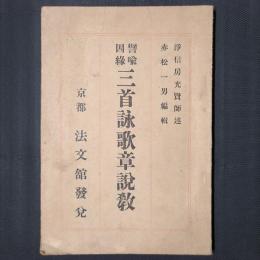 淨信房充賢師述
赤松一男編輯
譬喩
因緣
三首詠歌章說教
京都 法文館發兌